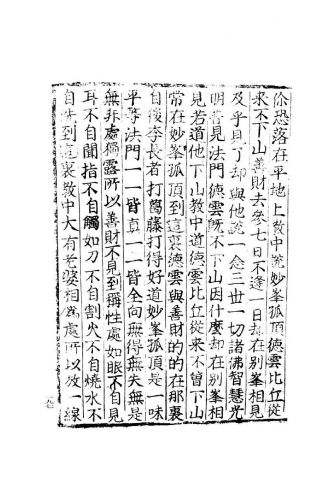 你恐落在平地上教中說妙峯孤頂德雲比丘從
來不下山善財去參七日不逢一日却在別峯相見
及乎見了却與他說一念三世一切諸佛智慧光
明普見法門德雲旣不下山因什麽却在別峯相
見若道他下山教中道德雲比丘從來不曾下山
常在妙峯孤頂到這裏德雲與善財的的在那裏
自後李長者打葛藤打得好道妙峯孤頂是一味
平等法門一一皆真一一皆全向無得無失無是
無非處獨露所以善財不見到稱性處如眼不自見
耳不自聞指不自觸如刀不自割火不自燒水不
自洗到這裏教中大有老婆相爲處所以放一線